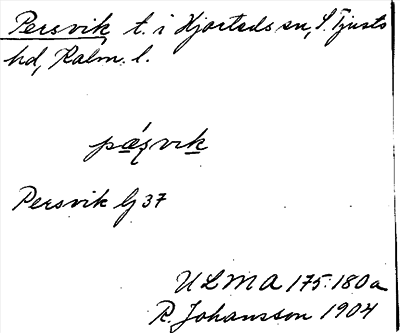 Persvik t. i Hjorteds sn, S. Tjusts
hd, Kalm. l.
pǽʂvik
Persvik Gj 37
ULMA 175:180a
R. Johansson 1904